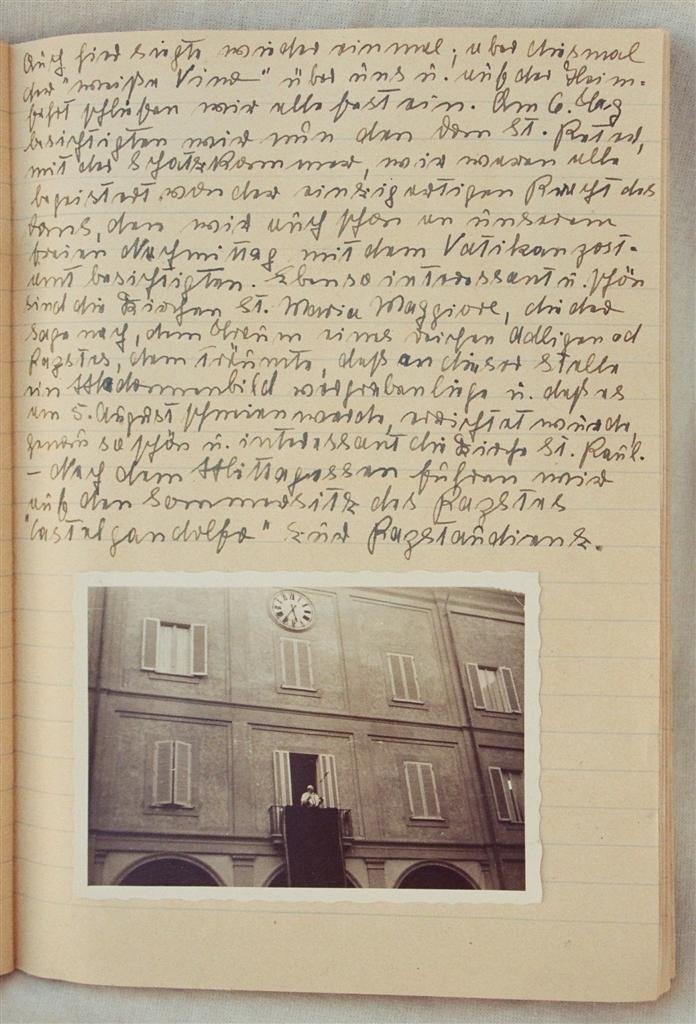 Auch hier siegte wieder einmal; aber diesmal
der "weiße Vino" über uns u. auf der Heim-
fahrt schliefen wir alle fest ein. Am 6. Tag
besichtigten wir nun den Dom St. Peter,
mit der Schatzkammer, wir waren alle
begeistert von der einzigartigen Pracht des
Doms, den wir auch schon an unserem
freien Nachmittag mit dem Vatikan post-
amt besichtigten. Ebenso interessant u. schön
sind die Kirchen St. Maria Maggiore, die der
Sage nach, dem Traum eines reichen Adligen od
Papstes, dem träumte, daß an dieser Stelle
ein Madonnenbild vergraben liege u. daß es
am 5. August schneien werde, errichtet wurde,
genau so schön u. interessant die Kirche St. Paul.
– Nach dem Mittagessen fuhren wir
auf den Sommersitz des Papstes
"Castelgandolfo" zur Papstaudienz.